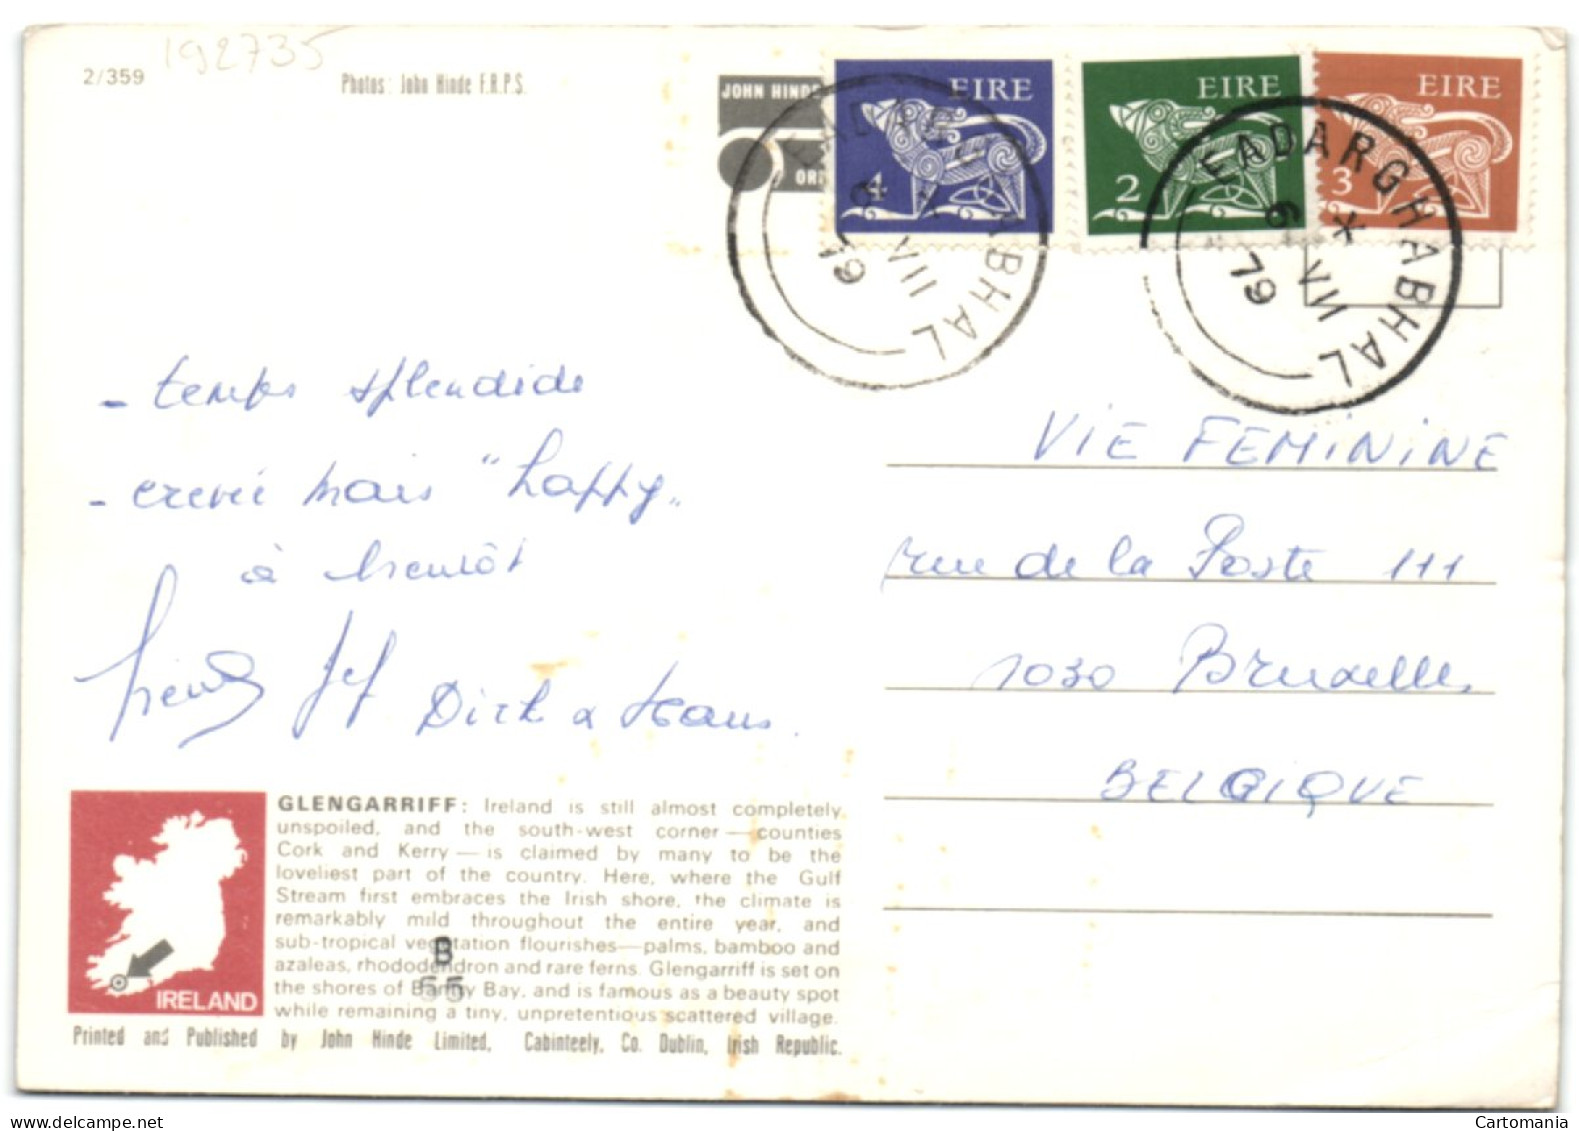 192735
2/359
Photos: John Hinde F.R.P.S.
JOHN HINDE
ORI
EIRE
4
EIRE
2
EIRE
3
EADARGHABHAL
6 VII 79
EADARGHABHAL
6 VII 79
- temps splendide
- crevée mais "happy"
à bientôt
Jef Dirk & Hans.
VIE FEMININE
rue de la Poste 111
1030 Bruxelles
BELGIQUE
IRELAND
GLENGARRIFF: Ireland is still almost completely
unspoiled, and the south-west corner — counties
Cork and Kerry — is claimed by many to be the
loveliest part of the country. Here, where the Gulf
Stream first embraces the Irish shore, the climate is
remarkably mild throughout the entire year, and
sub-tropical vegetation flourishes—palms, bamboo and
azaleas, rhododendron and rare ferns. Glengarriff is set on
the shores of Bantry Bay, and is famous as a beauty spot
while remaining a tiny, unpretentious scattered village.
B
55
Printed and Published by John Hinde Limited, Cabinteely, Co. Dublin, Irish Republic.
Cartomania